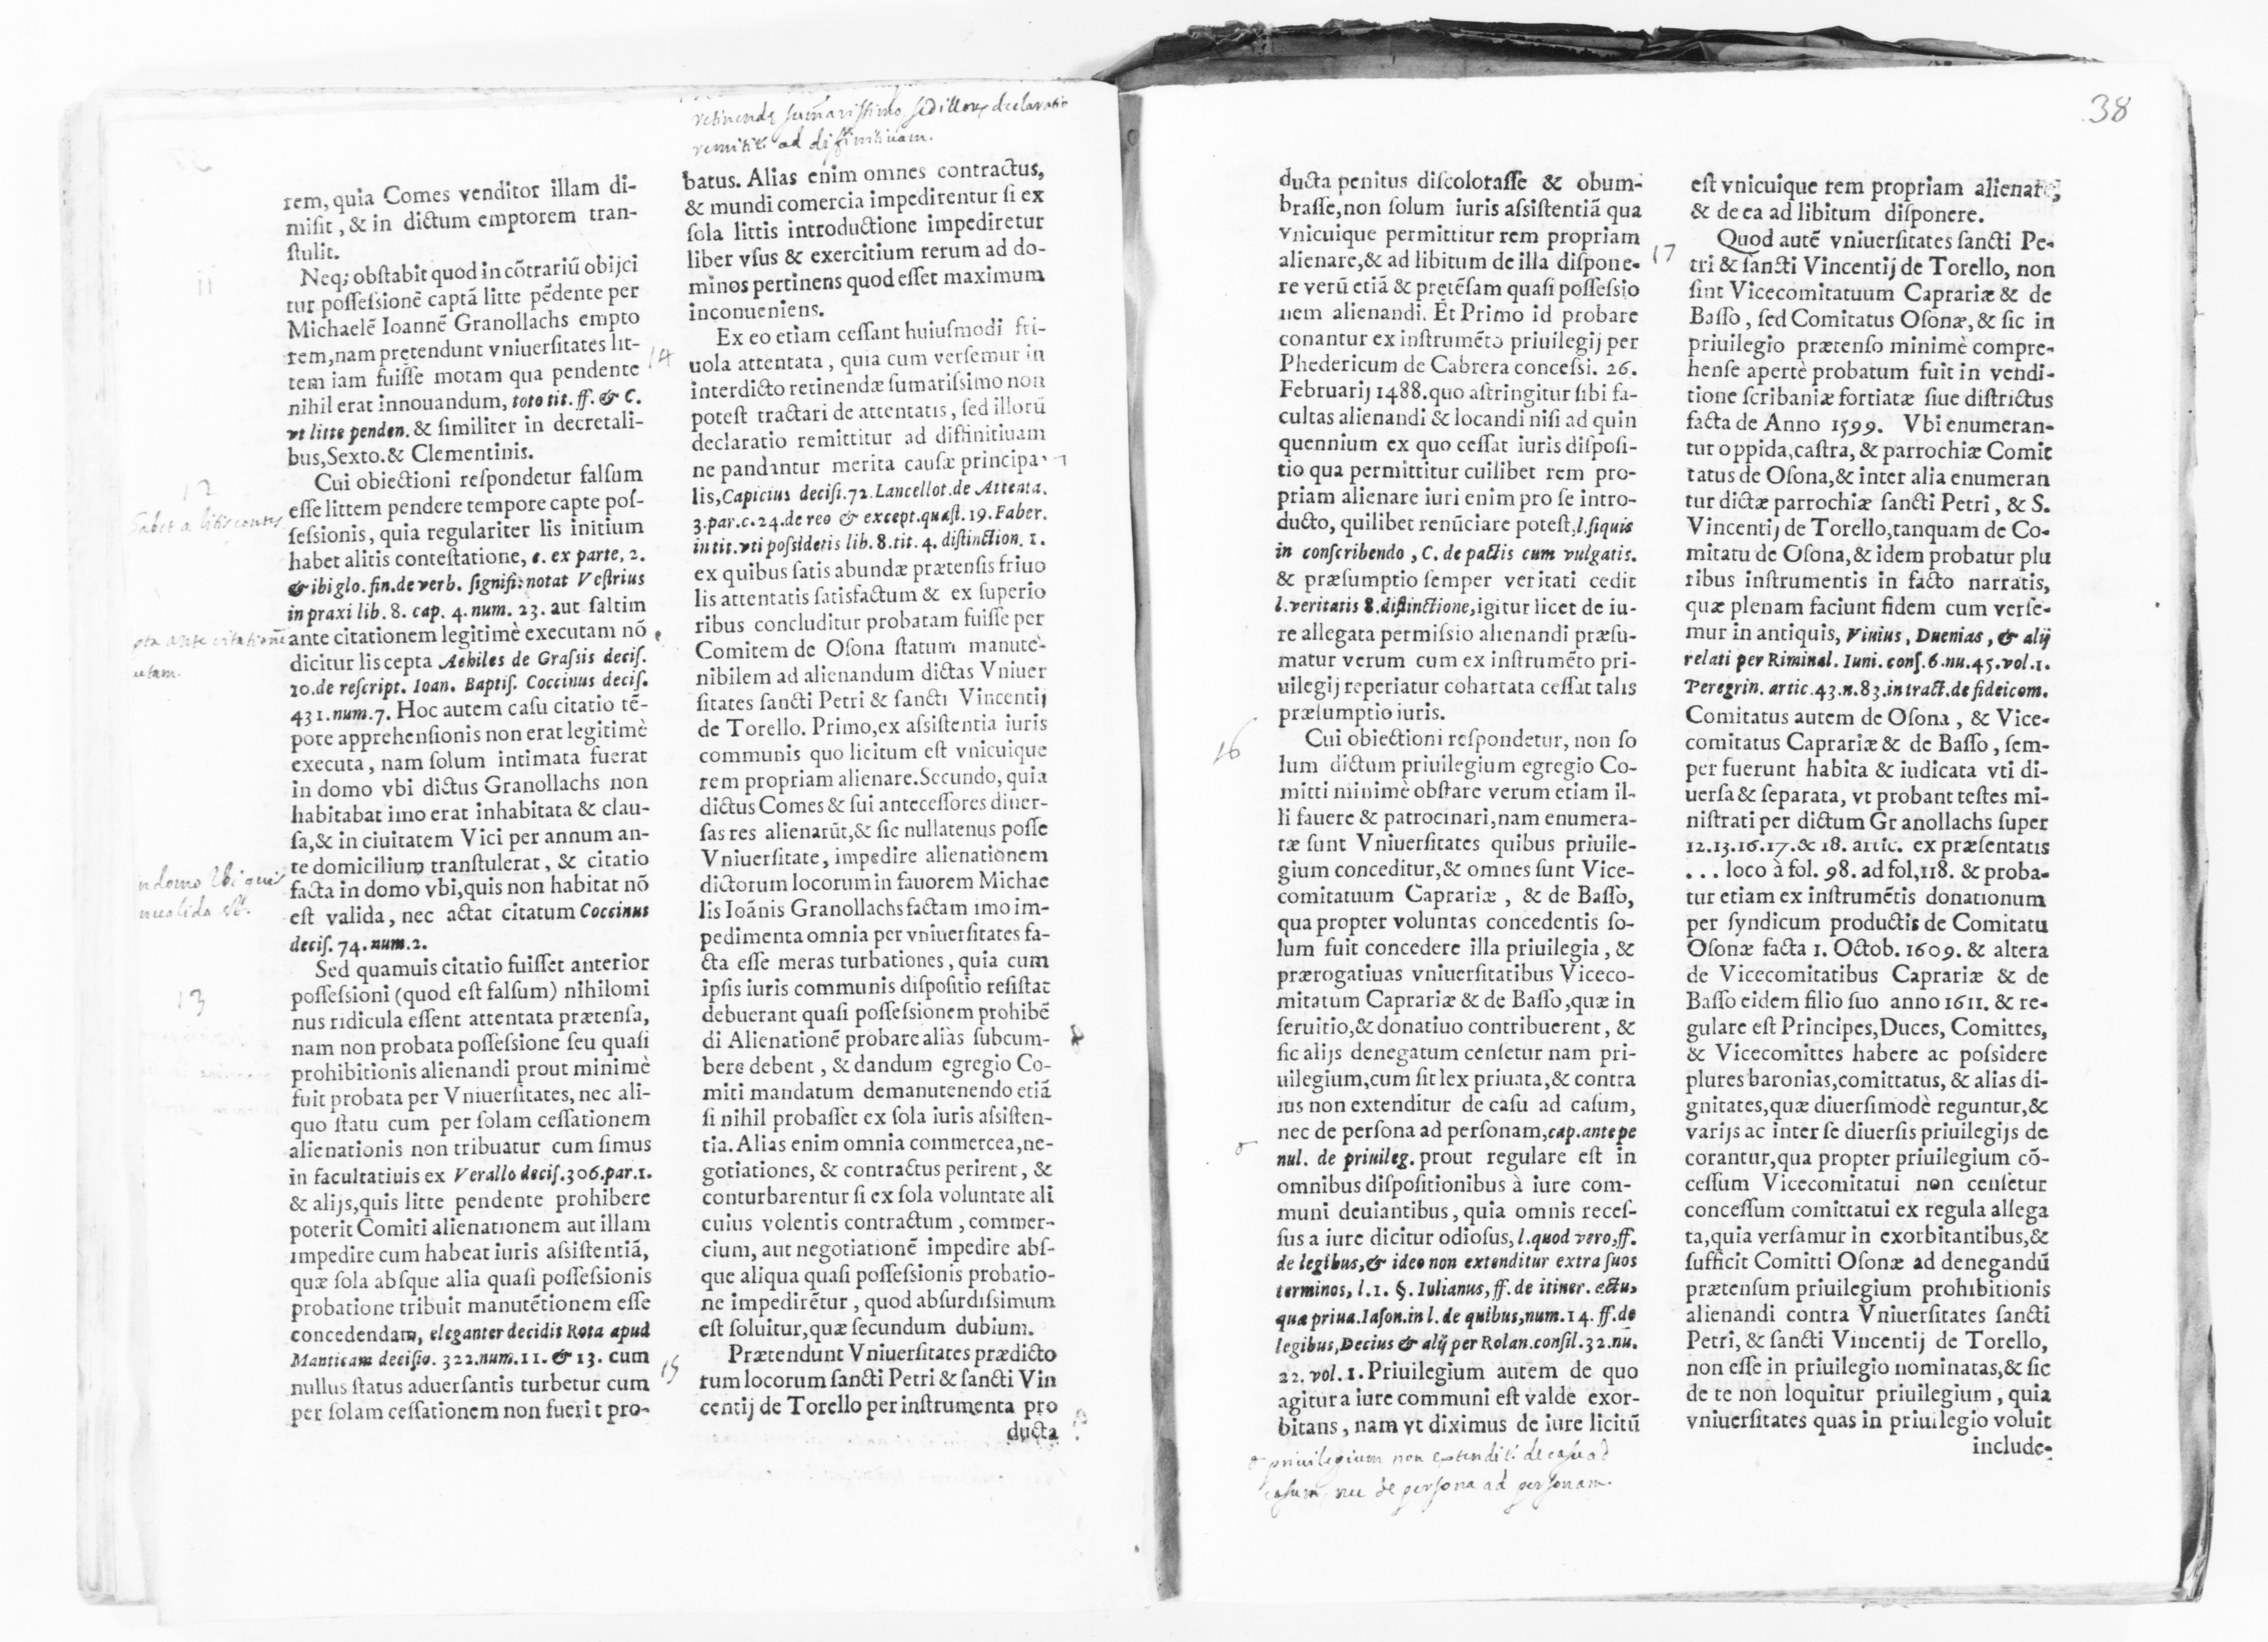 rem, quia Comes venditor illam di-
misit, & in dictum emptorem tran-
stulit.
Neq; obstabit quod in cõtrariũ obijci
tur possessionẽ captã litte pẽdente per
Michaelẽ Ioannẽ Granollachs empto
rem, nam prętendunt vniuersitates lit-
tem iam fuisse motam qua pendente
nihil erat innouandum, toto tit. ff. & C.
vt litte penden. & similiter in decretali-
bus, Sexto. & Clementinis.
12
Cui obiectioni respondetur falsum
esse littem pendere tempore capte pos-
sessionis, quia regulariter lis initium
habet alitis contestatione, c. ex parte, 2.
& ibi glo. fin. de verb. signifi: notat Vestrius
in praxi lib. 8. cap. 4. num. 23. aut saltim
ante citationem legitimè executam nõ
dicitur lis cepta Achiles de Grassis decis.
20. de rescript. Ioan. Baptis. Coccinus decis.
431. num. 7. Hoc autem casu citatio tẽ-
pore apprehensionis non erat legitimè
executa, nam solum intimata fuerat
in domo vbi dictus Granollachs non
habitabat imo erat inhabitata & clau-
sa, & in ciuitatem Vici per annum an-
te domicilium transtulerat, & citatio
facta in domo vbi, quis non habitat nõ
est valida, nec actat citatum Coccinus
decis. 74. num. 2.
in domo Vbi quis
13
Sed quamuis citatio fuisset anterior
possessioni (quod est falsum) nihilomi
nus ridicula essent attentata prætensa,
nam non probata possessione seu quasi
prohibitionis alienandi prout minimè
fuit probata per Vniuersitates, nec ali-
quo statu cum per solam cessationem
alienationis non tribuatur cum simus
in facultatiuis ex Verallo decis. 306. par. 1.
& alijs, quis litte pendente prohibere
poterit Comiti alienationem aut illam
impedire cum habeat iuris assistentiã,
quæ sola absque alia quasi possessionis
probatione tribuit manutẽtionem esse
concedendam, eleganter decidit Rota apud
Manticam decisio. 322. num. 11. & 13. cum
nullus status aduersantis turbetur cum
per solam cessationem non fuerit pro-
retinendę sum̃arissimo, sed illorum declaratio
remitit. ad diffinitiuam.
batus. Alias enim omnes contractus,
& mundi comercia impedirentur si ex
sola littis introductione impediretur
liber vsus & exercitium rerum ad do-
minos pertinens quod esset maximum
inconueniens.
14
Ex eo etiam cessant huiusmodi fri-
uola attentata, quia cum versemur in
interdicto retinendæ sumatissimo non
potest tractari de attentatis, sed illorũ
declaratio remittitur ad diffinitiuam
ne pandantur merita causæ principa-
lis, Capicius decisi. 72. Lancellot. de Attenta.
3. par. c. 24. de reo & except. quæst. 19. Faber.
in tit. vti possidetis lib. 8. tit. 4. distinction. 1.
ex quibus satis abundæ prætensis friuo
lis attentatis satisfactum & ex superio
ribus concluditur probatam fuisse per
Comitem de Osona statum manute-
nibilem ad alienandum dictas Vniuer
sitates sancti Petri & sancti Vincentij
de Torello. Primo, ex assistentia iuris
communis quo licitum est vnicuique
rem propriam alienare. Secundo, quia
dictus Comes & sui antecessores diuer-
sas res alienarũt, & sic nullatenus posse
Vniuersitate, impedire alienationem
dictorum locorum in fauorem Michae
lis Ioãnis Granollachs factam imo im-
pedimenta omnia per vniuersitates fa-
cta esse meras turbationes, quia cum
ipsis iuris communis dispositio resistat
debuerant quasi possessionem prohibẽ
di Alienationẽ probare aliàs subcum-
bere debent, & dandum egregio Co-
miti mandatum demanutenendo etiã
si nihil probasset ex sola iuris assisten-
tia. Alias enim omnia commercea, ne-
gotiationes, & contractus perirent, &
conturbarentur si ex sola voluntate ali
cuius volentis contractum, commer-
cium, aut negotiationẽ impedire abs-
que aliqua quasi possessionis probatio-
ne impedirẽtur, quod absurdissimum
est soluitur, quæ secundum dubium.
15
Prætendunt Vniuersitates prædicto
rum locorum sancti Petri & sancti Vin
centij de Torello per instrumenta pro
ducta
38
ducta penitus discolorasse & obum-
brasse, non solum iuris assistentiã qua
vnicuique permittitur rem propriam
alienare, & ad libitum de illa dispone-
re verũ etiã & pretẽsam quasi possessio
nem alienandi. Et Primo id probare
conantur ex instrumẽto priuilegij per
Phedericum de Cabrera concessi. 26.
Februarij 1488. quo astringitur sibi fa-
cultas alienandi & locandi nisi ad quin
quennium ex quo cessat iuris disposi-
tio qua permittitur cuilibet rem pro-
priam alienare iuri enim pro se intro-
ducto, quilibet renũciare potest, l. siquis
in conscribendo, C. de pactis cum vulgatis.
& præsumptio semper veritati cedit
l. veritatis 8. distinctione, igitur licet de iu-
re allegata permissio alienandi præsu-
matur verum cum ex instrumẽto pri-
uilegij reperiatur cohartata cessat talis
præsumptio iuris.
16
Cui obiectioni respondetur, non so
lum dictum priuilegium egregio Co-
mitti minimè obstare verum etiam il-
li fauere & patrocinari, nam enumera-
tæ sunt Vniuersitates quibus priuile-
gium conceditur, & omnes sunt Vice-
comitatuum Caprariæ, & de Basso,
qua propter voluntas concedentis so-
lum fuit concedere illa priuilegia, &
prærogatiuas vniuersitatibus Viceco-
mitatum Caprariæ & de Basso, quæ in
seruitio, & donatiuo contribuerent, &
sic alijs denegatum censetur nam pri-
uilegium, cum sit lex priuata, & contra
ius non extenditur de casu ad casum,
nec de persona ad personam, cap. antepe
nul. de priuileg. prout regulare est in
omnibus dispositionibus à iure com-
muni deuiantibus, quia omnis reces-
sus a iure dicitur odiosus, l. quod vero, ff.
de legibus, & ideo non extenditur extra suos
terminos, l. 1. §. Iulianus, ff. de itiner. actu,
qua priua. Iason. in l. de quibus, num. 14. ff. de
legibus, Decius & alij per Rolan. consil. 32. nu.
22. vol. 1. Priuilegium autem de quo
agitur a iure communi est valde exor-
bitans, nam vt diximus de iure licitũ
priuilegium non extendit. de casu ad
casum, nec de persona ad personam.
est vnicuique rem propriam alienare,
& de ea ad libitum disponere.
17
Quod autẽ vniuersitates sancti Pe-
tri & sancti Vincentij de Torello, non
sint Vicecomitatuum Caprariæ & de
Basso, sed Comitatus Osonæ, & sic in
priuilegio prætenso minimè compre-
hense apertè probatum fuit in vendi-
tione scribaniæ fortiatæ siue districtus
facta de Anno 1599. Vbi enumeran-
tur oppida, castra, & parrochiæ Comit
tatus de Osona, & inter alia enumeran
tur dictæ parrochiæ sancti Petri, & S.
Vincentij de Torello, tanquam de Co-
mitatu de Osona, & idem probatur plu
ribus instrumentis in facto narratis,
quæ plenam faciunt fidem cum verse-
mur in antiquis, Viuius, Duenias, & alij
relati per Riminal. Iuni. cons. 6. nu. 45. vol. 1.
Peregrin. artic. 43. n. 83. in tract. de fideicom.
Comitatus autem de Osona, & Vice-
comitatus Caprariæ & de Basso, sem-
per fuerunt habita & iudicata vti di-
uersa & separata, vt probant testes mi-
nistrati per dictum Granollachs super
12. 13. 16. 17. & 18. artic. ex præsentatis
... loco à fol. 98. ad fol, 118. & proba-
tur etiam ex instrumẽtis donationum
per syndicum productis de Comitatu
Osonæ facta 1. Octob. 1609. & altera
de Vicecomitatibus Caprariæ & de
Basso eidem filio suo anno 1611. & re-
gulare est Principes, Duces, Comittes,
& Vicecomittes habere ac possidere
plures baronias, comittatus, & alias di-
gnitates, quæ diuersimodè reguntur, &
varijs ac inter se diuersis priuilegijs de
corantur, qua propter priuilegium cõ-
cessum Vicecomitatui non censetur
concessum comittatui ex regula allega
ta, quia versamur in exorbitantibus, &
sufficit Comitti Osonæ ad denegandũ
prætensum priuilegium prohibitionis
alienandi contra Vniuersitates sancti
Petri, & sancti Vincentij de Torello,
non esse in priuilegio nominatas, & sic
de te non loquitur priuilegium, quia
vniuersitates quas in priuilegio voluit
include-